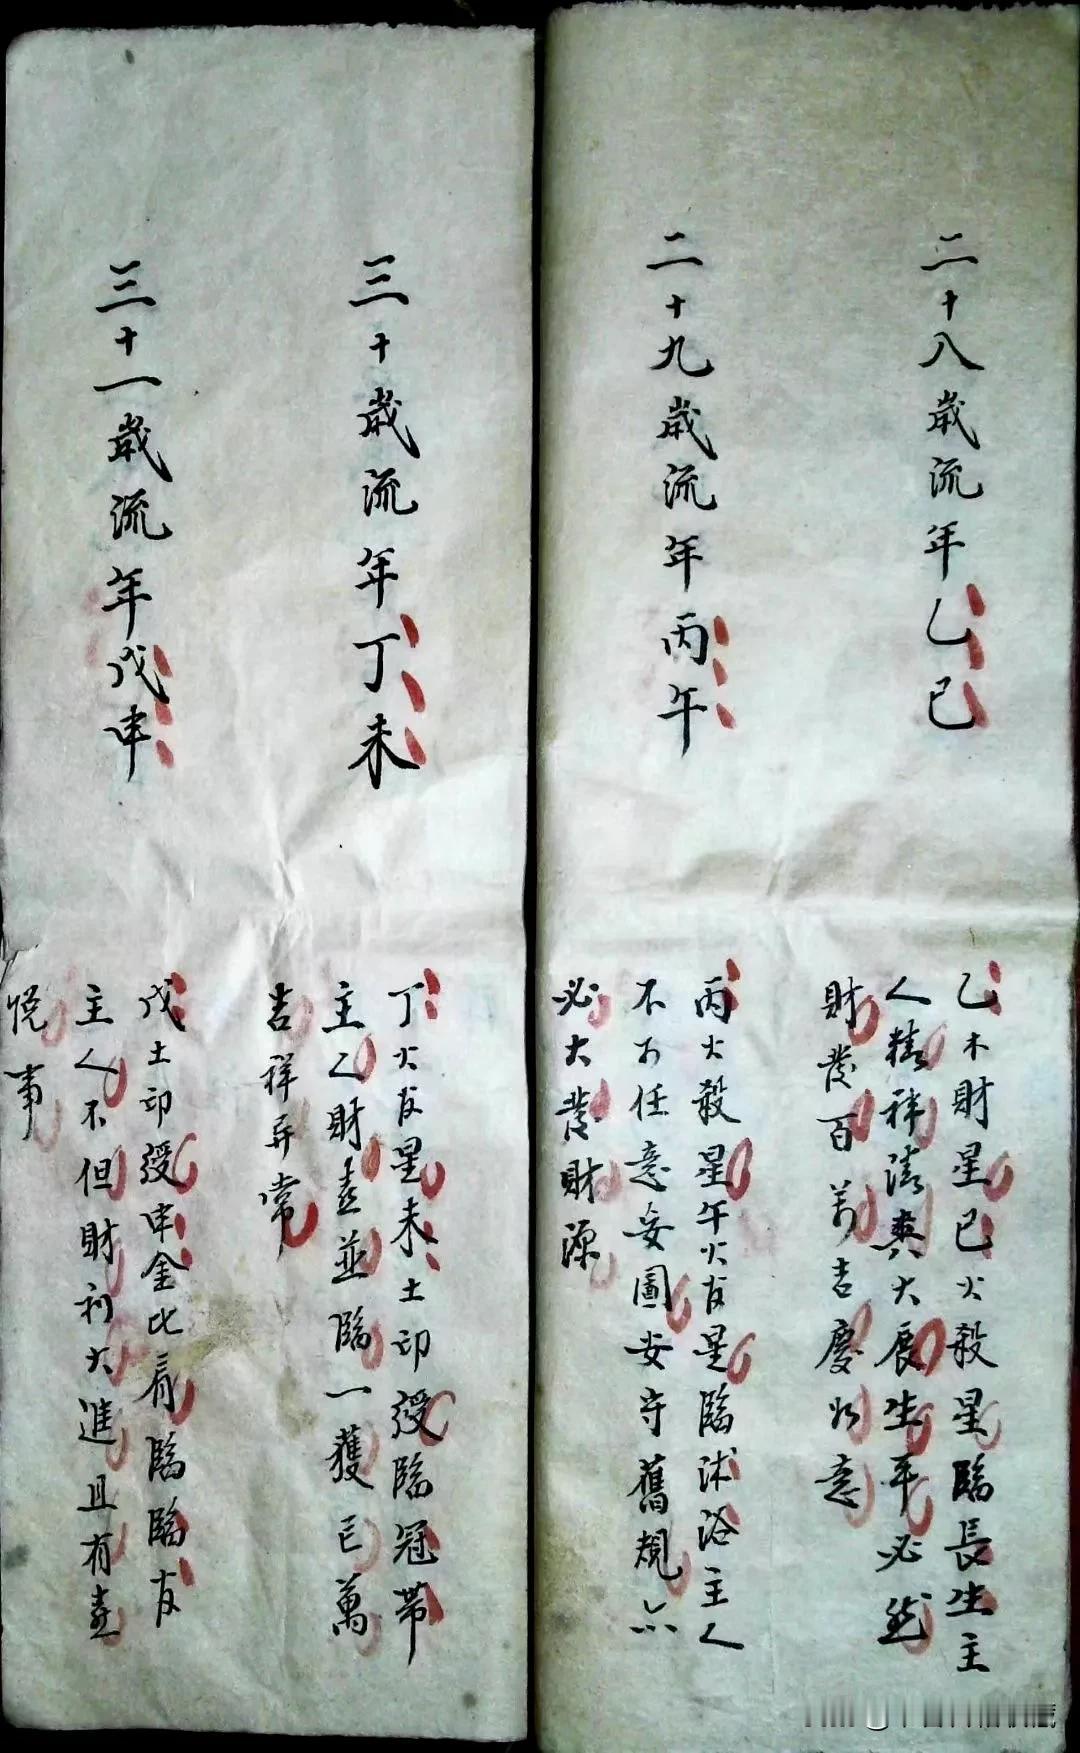 二十八歲流年乙巳
乙木財星巳火殺星臨長生主
人精神清爽大展生平必然
財發百萬吉慶如意
二十九歲流年丙午
丙火殺星午火官星臨沐浴主人
不可任意妄圖安守舊規亦
必大發財源
三十歲流年丁未
丁火官星未土印綬臨冠帶
主人財喜並臨一獲已萬
吉祥异常
三十一歲流年戊申
戊土印綬申金比肩臨臨官
主人不但財利大進且有喜
悅事